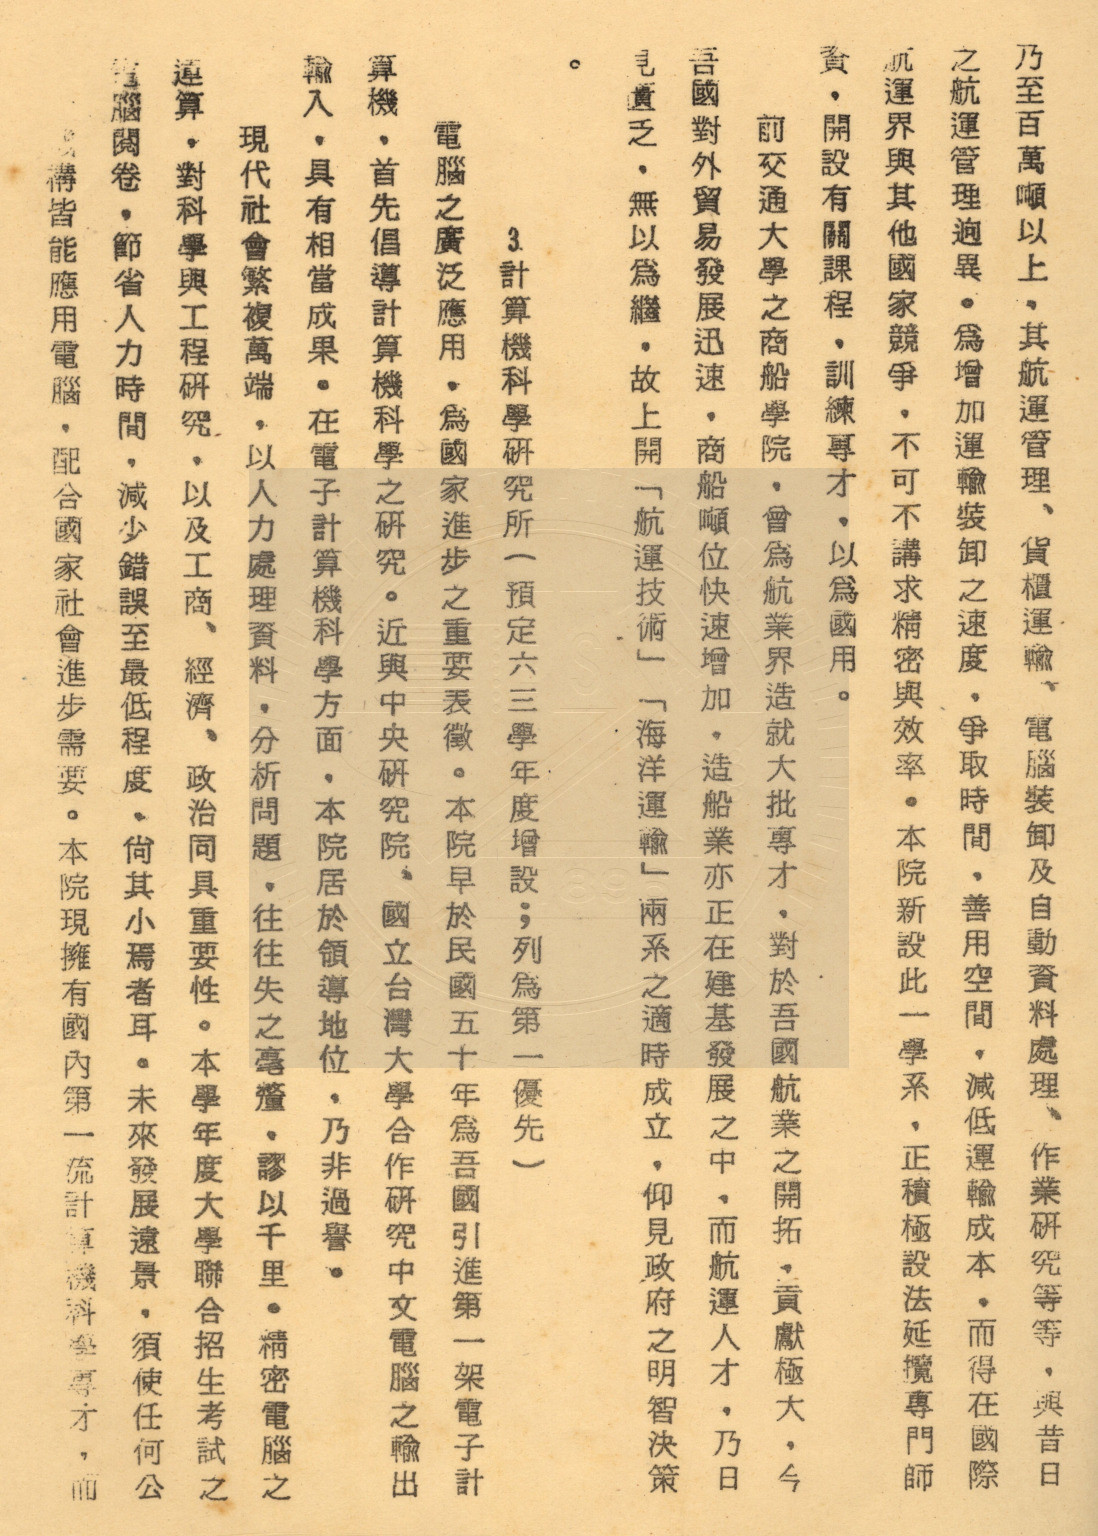 乃至百萬噸以上，其航運管理、貨櫃運輸、電腦裝卸及自動資料處理、作業研究等等，與昔日
之航運管理逈異。爲增加運輸裝卸之速度，爭取時間，善用空間，減低運輸成本，而得在國際
航運界與其他國家競爭，不可不講求精密與效率。本院新設此一學系，正積極設法延攬專門師
資，開設有關課程，訓練專才，以爲國用。
前交通大學之商船學院，曾爲航業界造就大批專才，對於吾國航業之開拓，貢獻極大，今
吾國對外貿易發展迅速，商船噸位快速增加，造船業亦正在建基發展之中，而航運人才，乃日
見匱乏，無以爲繼，故上開「航運技術」「海洋運輸」兩系之適時成立，仰見政府之明智決策
。
3.計算機科學研究所（預定六三學年度增設；列爲第一優先）
電腦之廣泛應用，爲國家進步之重要表徵。本院早於民國五十年爲吾國引進第一架電子計
算機，首先倡導計算機科學之研究。近與中央研究院、國立台灣大學合作研究中文電腦之輸出
輸入，具有相當成果。在電子計算機科學方面，本院居於領導地位，乃非過譽。
現代社會繁複萬端，以人力處理資料，分析問題，往往失之毫釐，謬以千里。精密電腦之
運算，對科學與工程研究，以及工商、經濟、政治同具重要性。本學年度大學聯合招生考試之
電腦閱卷，節省人力時間，減少錯誤至最低程度，尙其小焉者耳。未來發展遠景，須使任何公
構皆能應用電腦，配合國家社會進步需要。本院現擁有國內第一流計算機科學專才，而